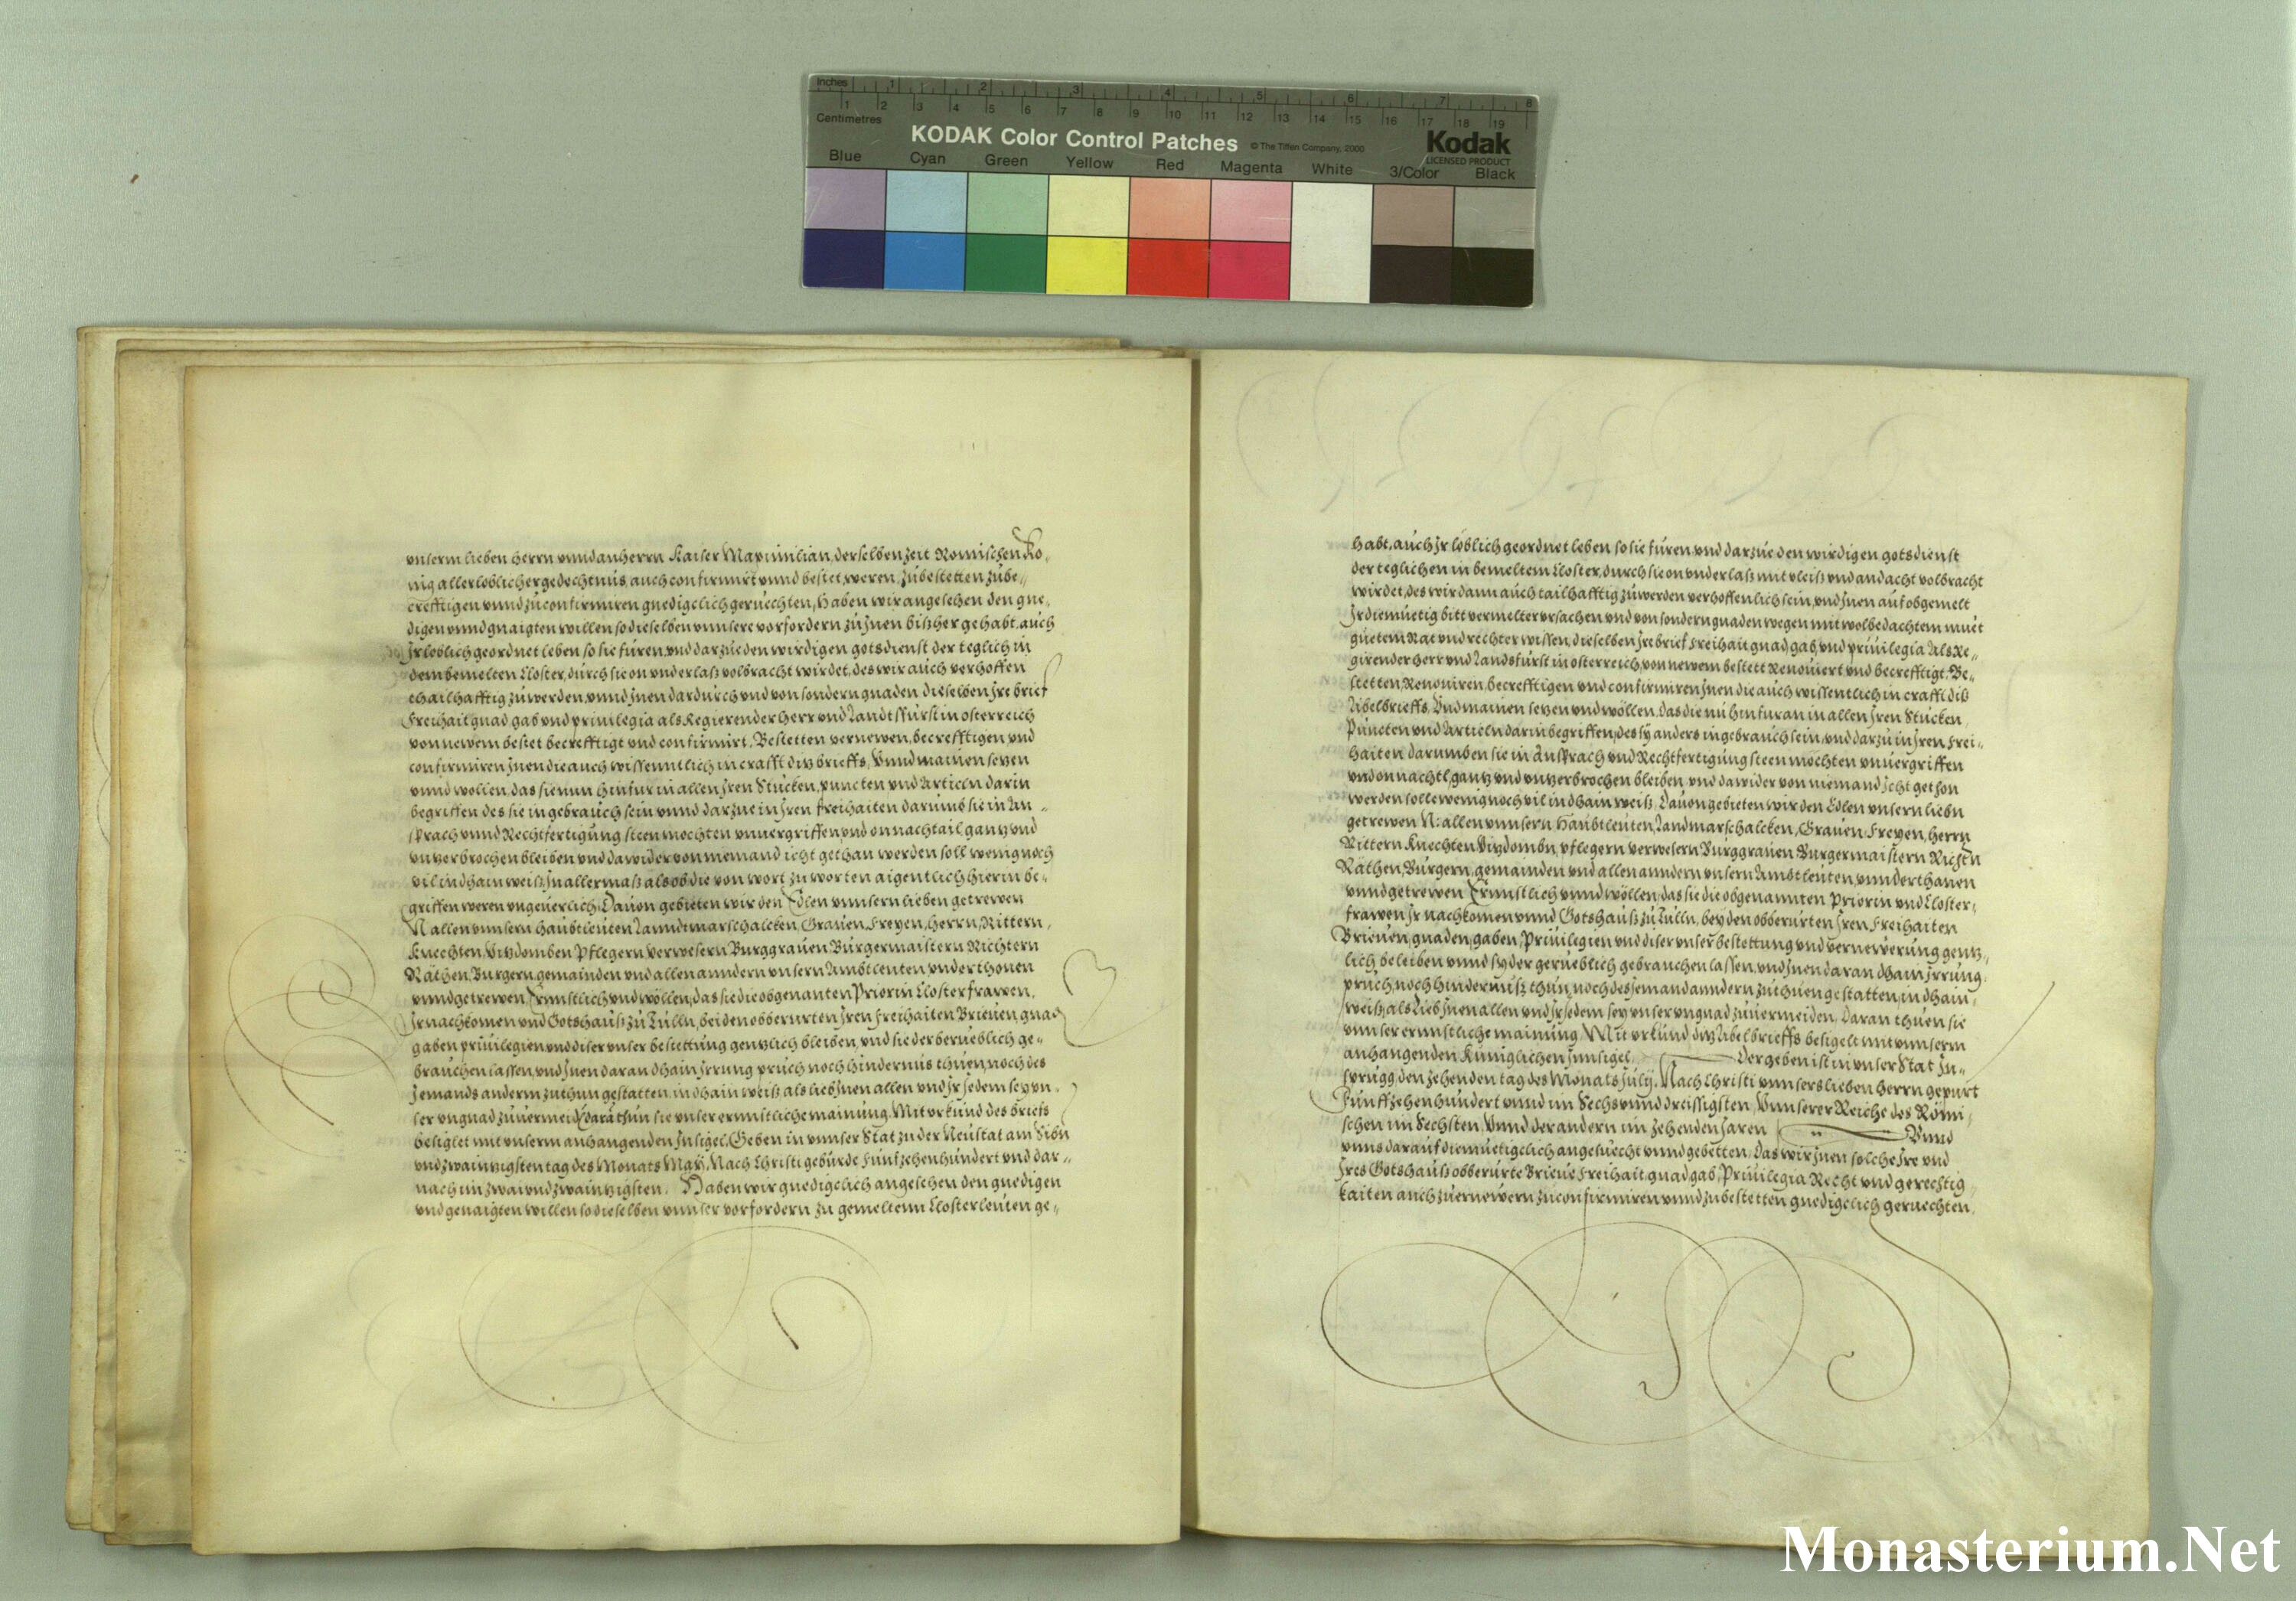 Inches 1 2 3 4 5 6 7 8
1 2 3 4 5 6 7 8 9 10 11 12 13 14 15 16 17 18 19
Centimetres
KODAK Color Control Patches © The Tiffen Company, 2000 Kodak
LICENSED PRODUCT
Blue Cyan Green Yellow Red Magenta White 3/Color Black
vnserm lieben herrn vnnd anherrn Kaiser Maximilian, derselben zeit Romischen Ko,
nig aller loblicher gedechtnus, auch confirmirt vnnd bestet weren, zubestetten zube„
crefftigen vnnd zu confirmiren gnedigclich geruechten, Haben wir angesehen den gne,
digen vnnd gnaigten willen so dieselben vnnsere vorfordern zu Jnen bißher gehabt, auch
Jr loblich geordnet leben so sie furen, vnd darzue den wirdigen gotsdienst der teglich in
dem bemelten Closter, durch sie on vnderlaß volbracht wirdet, des wir auch verhoffen
thailhafftig zuwerden, vnnd Jnen dardurch vnd von sondern gnaden dieselben Jre brief
Freihait gnad gab vnd priuilegia als Regierender Herr vnd Landtsfurst in osterreich
von newem bestet becrefftigt vnd confirmirt. Bestetten vernewen, becrefftigen, vnd
confirmiren Jnen die auch wissenntlich in crafft ditz brieffs, Vnnd mainen setzen
vnnd wollen, das sie nun hinfur in allen Jren Stucken, puncten vnd Articln darin
begriffen des sie in gebrauch sein vnnd darzue in Jren freihaiten darumb sie in An„
sprach vnnd Rechtfertigung steen mochten vnuergriffen, vnd on nachtail gantz vnd
vnzerbrochen bleiben vnd dawider von niemand icht gethan werden soll wenig noch
vil in dhain weiß, Jn allermaß als ob die von wort zu worten aigentlich hierin be„
griffen weren vngeuerlich. Dauon gebieten wir den Edlen vnnsern lieben getrewen
N allen vnnsern haubtleuten Lanndtmarschalcken, Grauen, Freyen, Herrn, Rittern,
Knechten, Vitzdomben Pflegern, verwesern Burggrauen Burgermaistern Richtern
Räthen, Burgern, gemainden vnd allen anndern vnsern Ambtleuten, vnderthonen
vnnd getrewen Ernnstlich vnd wöllen, das sie die obgenanten Priorin Closterfrawen,
Jr nachkomen vnd Gotshauß zu Tulln, bei den obberurten Jren Freihaiten Brieuen, gnad
gaben priuilegien, vnd diser vnser bestettung genntzlich bleiben, vnd sie der berueblich ge„
brauchen lassen, vnd Jnen daran dhain Jrrung pruch noch hindernus thuen, noch des
Jemands anderm zuthun gestatten, in dhain weiß als lieb Jnen allen vnd Jr Jedem sey vn,
ser vngnad zuuermeid, darath&#361;n sie vnser ernnstliche mainung. Mit vrkund des briefs
besiglet mit vnserm anhangenden Jnsigel. Geben in vnnser Stat zu der Neustat am Sibn
vnd zwaintzigsten tag des Monats May, Nach Christi geburde Funfzehenhundert vnd dar„
nach im zwai vnd zwaintzigsten. Haben wir gnedigclich angesehen den gnedigen
vnd genaigten willen so dieselben vnnser vorfordern zu gemeltenn Closterleuten ge„
habt, auch Jr loblich geordnet leben so sie furen, vnd darzue den wirdigen gotsdienst
der teglichen in bemeltem Closter, durch sie on vnderlaß mit vleiß vnd andacht volbracht
wirdet, des wir dann auch tailhafftig zuwerden verhoffenlich sein, vnd Jnen auf obgemelt
Jr diemuetig bitt vermelter vrsachen vnd von sondern gnaden wegen mit wolbedachtem muet
guetem Rat vnd rechter wissen, dieselben Jre brief Freihait gnad, gab, vnd priuilegia Als Re„
girender herr vnd Landsfurst in osterreich, von newem bestett Renouiert vnd becrefftigt, Be„
stetten, Renouiren, becrefftigen vnd confirmiren Jnen die auch wissentlich in crafft diß
Libelbrieffs, Vnd mainen setzen vnd wöllen, das die nu hinfuran in allen Jren Stucken
Puncten vnd Articln darin begriffen, des sy anders in gebrauch sein, vnd darzu in Jren Frei„
haiten darumben sie in Ansprach vnd Rechtfertigung steen möchten vnuergriffen
vnd on nachtl, gantz vnd vnzerbrochen bleiben, vnd dawider von niemand Jcht gethon
werden solle wenig noch vil in dhain weiß. Dauon gebieten wir den Edlen vnsern liebn
getrewen N: allen vnnsern Haubtleuten, Landmarschalcken, Grauen, Freyen, Herrn
Rittern Knechten, Vitzdombn, pflegern verwesern Burggrauen Burgermaistern Richtn
Räthen, Burgern, gemainden vnd allen anndern vnsern Ambtleuten, vnnderthanen
vnnd getrewen Ernnstlich vnnd wöllen, das sie die obgenannten Priorin vnd Closter„
frawen Jr nachkomen vnnd Gotshauß zu Tulln, bey den obberurten Jren Freihaiten
Brieuen, gnaden, gaben, Priuilegien vnd diser vnser bestettung vnd vernewerung gentz„
lich beleiben vnnd sy der gerueblich gebrauchen lassen, vnd Jnen daran dhain Jrrung,
pruch, noch hindernuß thun, noch des Jemand anndern zuthuen gestatten, in dhain
weiß, als lieb Jnen allen vnd Jr Jedem sey vnser vngnad zuuermeiden, Daran thuen sie
vnnser ernnstliche mainung. Mit vrkund ditz Libelbrieffs besigelt mit vnnserm
anhangenden Kuniglichen Jnnsigel, Der geben ist in vnser Stat Jn„
sprugg, den zehenden tag des Monats July, Nach Christi vnnsers lieben herrn gepurt
Funffzehenhundert vnnd im Sechs vnnd dreissigsten, Vnnserer Reiche des Römi,
schen im Sechsten, Vnnd der andern im zehenden Jaren Vnnd
vnns darauf diemuetigclich angesuecht vnnd gebetten, Das wir Jnen solche Jre vnd
Jres Gotshauß obberurte Brieue Freihait, gnad gab, Priuilegia Recht vnd gerechtig
kaiten auch zuernewern zu confirmiren vnnd zubestetten gnedigclich geruechten,
Monasterium.Net